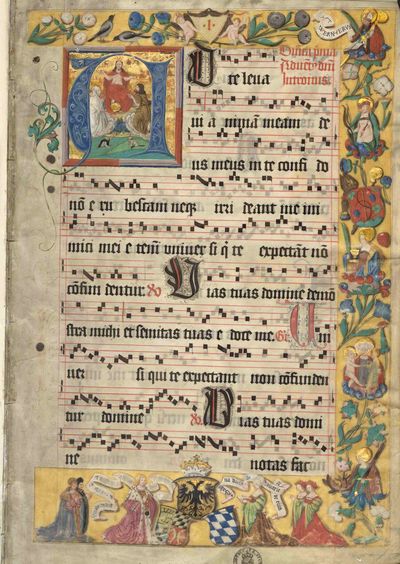 Dñica pima
Adue͂t dñi
Introitus
A D
te leua
ui a nimam meam de
us meus in te confi do
nō e ru bescam neqʒ irri deant me ini
mici mei e teni͂ vniuer si q̇ te expectant nō
cōfun dentur. V Vias tuas domine demō
stra michi et semitas tuas e doce me. Gr̄ Un
iuer si qui te expectant non cōfunden
tur domine V Vias tuas domi
ne notas fac